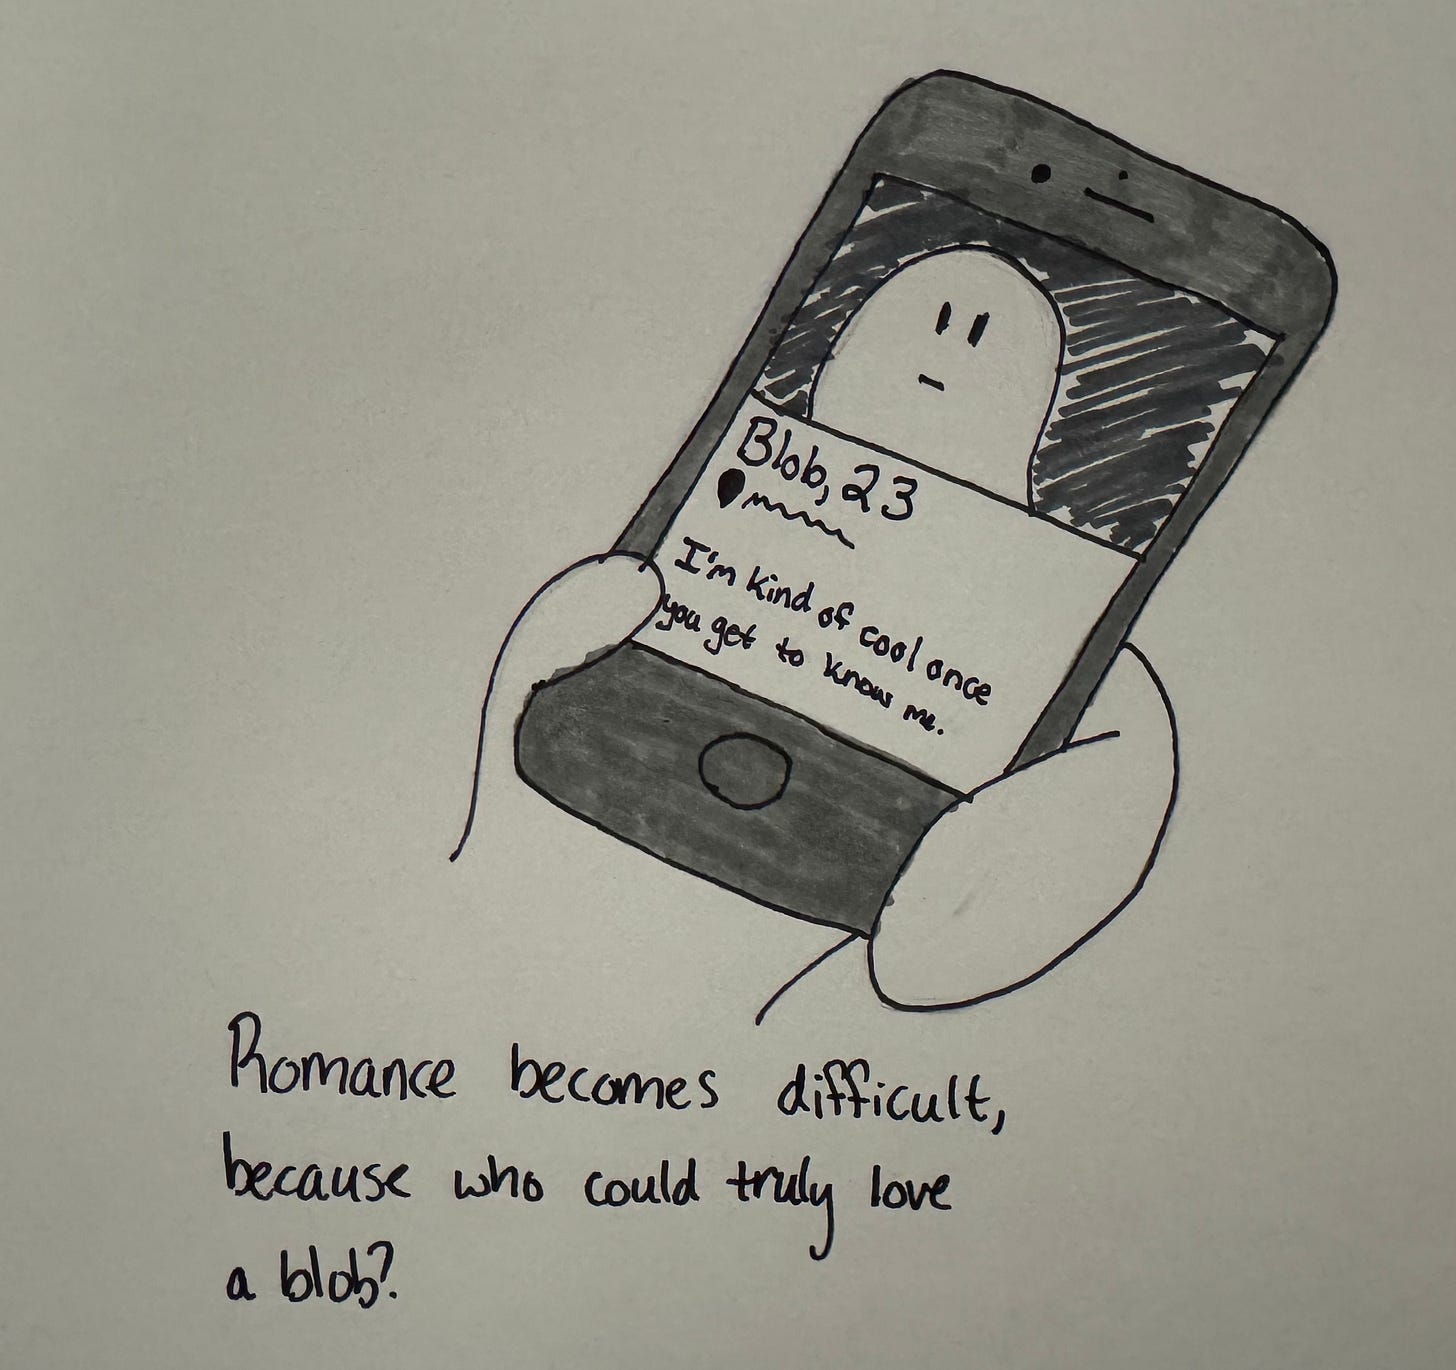 Blob, 23
I'm kind of cool once
you get to know me.
Romance becomes difficult,
because who could truly love
a blob?